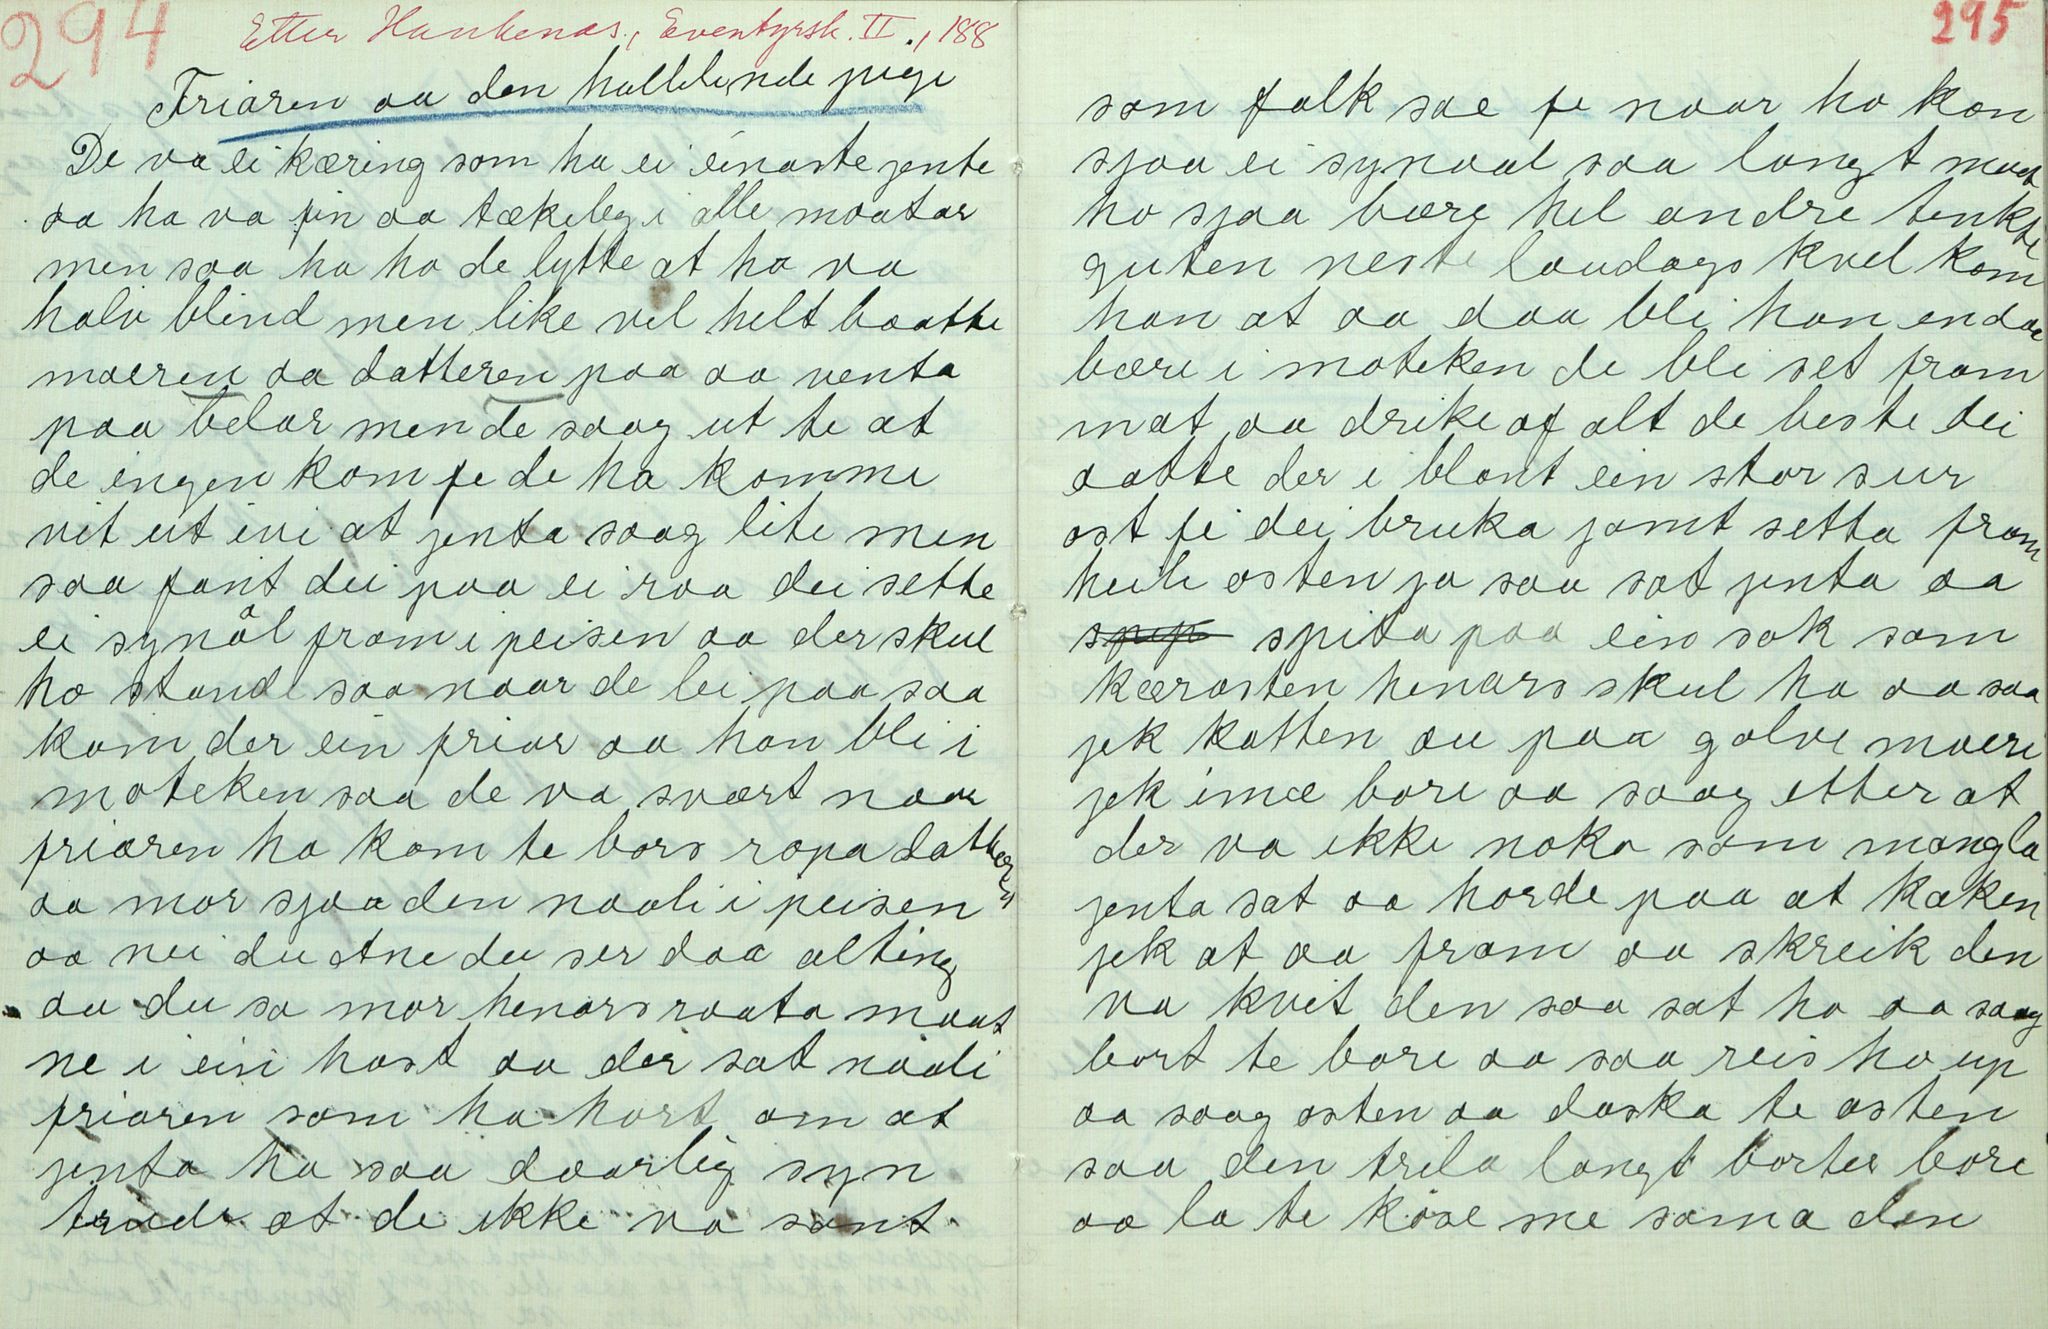 294
Etter Hankenæs, Eventyrsk. II., 188
Friaren aa den halblinde pige
De va ei kæring som ha ei einaste jente
aa ho va fin aa tækeleg i alle maatar
men saa ha ho de lytte at ho va
halv blind men like vel helt baatte
moeren aa datteren paa aa venta
paa belar men de saag ut te at
de ingen kom fe de ha komme
vit ut ivi at jenta saag lite men
saa fant dei paa ei raa dei sette
ei synål fram i peisen aa der skul
ho stande saa naar de lei paa saa
kom der ein friar aa han bli i
moteken saa de va svært naar
friaren ha kom te bors ropa datteren
aa mor sjaa den naali i peisen
aa nei du Ane du ser daa alting
aa du sa mor henars raata maat
ne i ein hast aa der sat naali
friaren som ha hort om at
jenta ha saa daarlig syn
trude at de ikke va sant
295
som folk sae fe naar ho kan
sjaa ei synaal saa langt maat
ho sjaa bære hel andre tenkte
guten neste laudags kvel kom
han at aa daa bli han endaa
bære i moteken de bli set fram
mat aa drike af alt de beste dei
aatte der i blant ein stor sur
ost fe dei bruka jamt setta fram
heile osten ja saa sat jenta aa
spita paa ein sok som
kærasten henars skul ha aa saa
jek katten au paa golve moere
jek imæ bore aa saag etter at
der va ikke noka som mangla
jenta sat aa horde paa at kaken
jek at aa fram aa skreik den
va kvit den saa sat ho aa saag
bort te bore aa saa reis ho up
aa saag osten aa daska te osten
saa den trila langt borter bore
aa la te kose me sama den